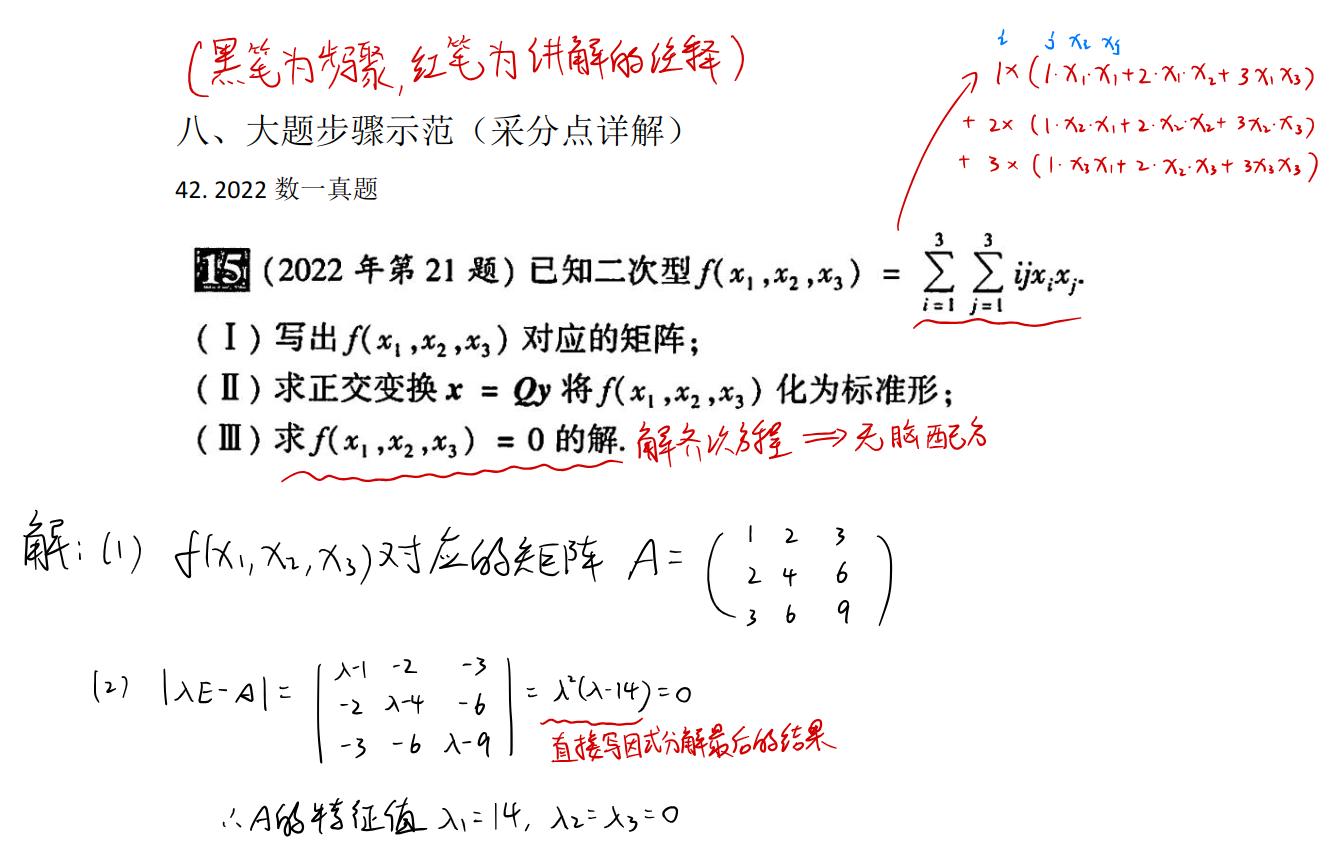 (黑笔为步骤,红笔为讲解的注释)
八、大题步骤示范(采分点详解)
42. 2022 数一真题
i j x₂ xⱼ
1×(1·x₁·x₁+2·x₁·x₂+3x₁x₃)
+ 2×(1·x₂·x₁+2·x₂·x₂+3x₂·x₃)
+ 3×(1·x₃x₁+2·x₂·x₃+3x₃x₃)
15 (2022 年第 21 题) 已知二次型 f(x₁,x₂,x₃) = ∑³ᵢ₌₁ ∑³ⱼ₌₁ ijxᵢxⱼ.
(Ⅰ) 写出 f(x₁,x₂,x₃) 对应的矩阵;
(Ⅱ) 求正交变换 x = Qy 将 f(x₁,x₂,x₃) 化为标准形;
(Ⅲ) 求 f(x₁,x₂,x₃) = 0 的解. 解齐次方程 ⇒ 无脑配方
解:(1) f(x₁,x₂,x₃)对应的矩阵 A=
1 2 3
2 4 6
3 6 9
(2) |λE-A|=
λ-1 -2 -3
-2 λ-4 -6
-3 -6 λ-9
=λ²(λ-14)=0
直接写因式分解最后的结果
∴A的特征值 λ₁=14, λ₂=λ₃=0